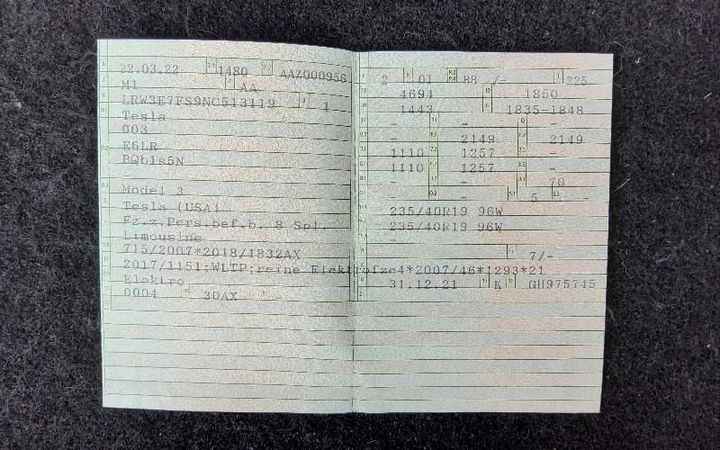 22.03.22 1480 AAZ000956
M1 AA
LRW3E7FS9NC513119 1
Tesla
003
E6LR
BQb1s5N
-
Model 3
Tesla (USA)
Fz.z.Pers.bef.b. 8 Spl.
Limousine
715/2007*2018/1832AX
2017/1151;WLTP;reine Elektrofz
Elektro
0004 30AX
2 01 88 /- 225
4694 1850
1443 1835-1848
- - -
- 2149 2149
1110 1257 -
1110 1257 -
- - 70
- - 5 -
235/40R19 96W
235/40R19 96W
-
7/-
e4*2007/46*1293*21
31.12.21 K GH975745